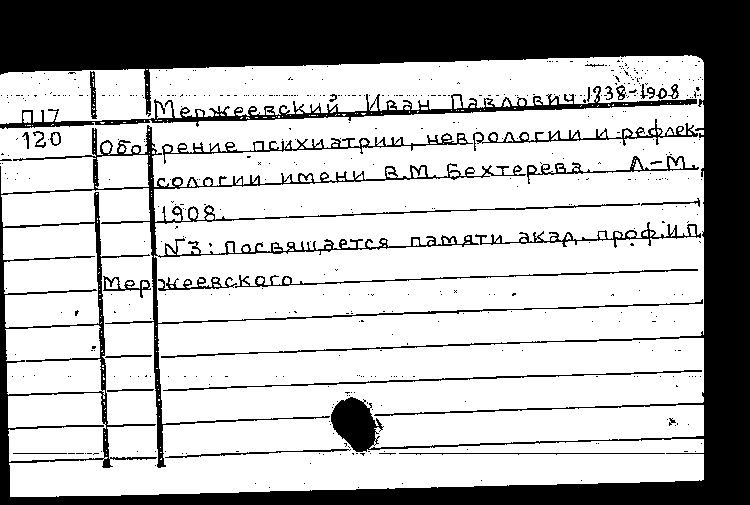 П17
120
Мержеевский, Иван Павлович. 1838-1908.
Обозрение психиатрии, неврологии и рефлек-
сологии имени В.М. Бехтерева. Л.-М.,
1908.
N3: Посвящается памяти акад. проф. И.П.
Мержеевского.